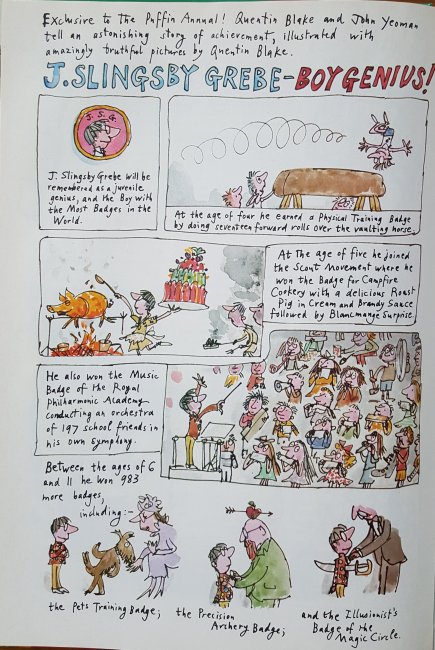 Exclusive to the Puffin Annual! Quentin Blake and John Yeoman
tell an astonishing story of achievement, illustrated with
amazingly truthful pictures by Quentin Blake.
J. SLINGSBY GREBE - BOY GENIUS!
J. S. G.
J. Slingsby Grebe will be
remembered as a juvenile
genius, and the Boy with
the Most Badges in the
World.
At the age of four he earned a Physical Training Badge
by doing seventeen forward rolls over the vaulting horse.
At the age of five he joined
the Scout Movement where he
won the Badge for Campfire
Cookery with a delicious Roast
Pig in Cream and Brandy Sauce
followed by Blancmange Surprise.
He also won the Music
Badge of the Royal
Philharmonic Academy
conducting an orchestra
of 197 school friends in
his own Symphony.
Between the ages of 6
and 11 he won 983
more badges,
including:-
the Pets Training Badge;
the Precision
Archery Badge;
and the Illusionist's
Badge of the
Magic Circle.